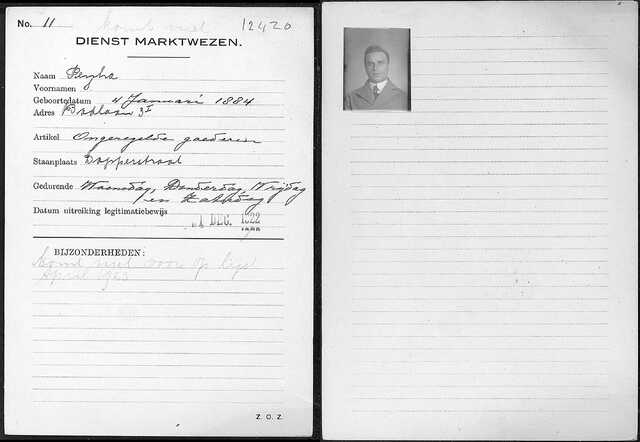 No. 11 komt niet 12420
DIENST MARKTWEZEN.
Naam
Voornamen
Geboortedatum 4 Januari 1884
Adres 3I
Artikel Ongeregelde goederen
Staanplaats Dapperstraat
Gedurende Woensdag, Donderdag, Vrijdag
en Zaterdag
Datum uitreiking legitimatiebewijs
1 DEC. 1922
BIJZONDERHEDEN:
komt niet voor op lijst
April 1923
Z. O. Z.